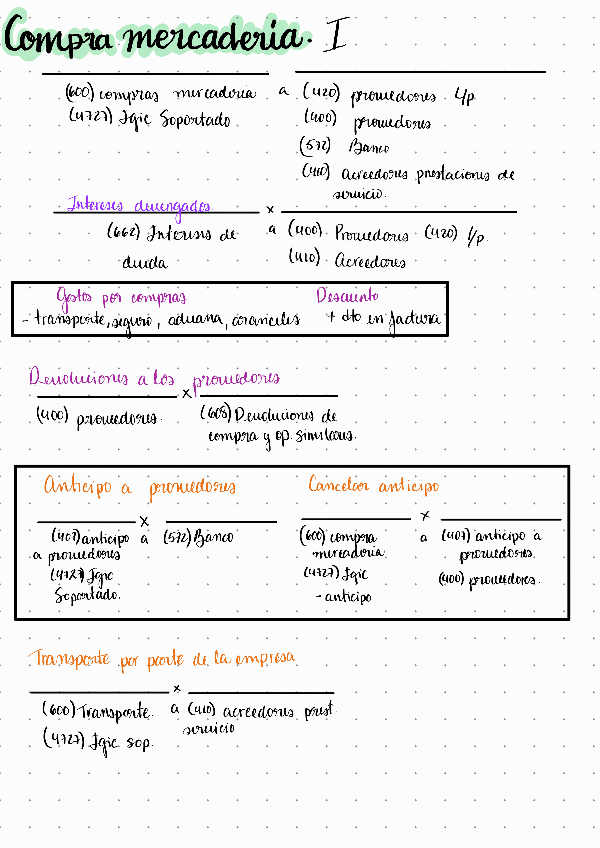 Compra mercaderia. I
(600) compras mercaderia a (420) proveedores L/p
(4727) Igic Soportado. (400) proveedores
(572) Banco
(410) Acreedores prestaciones de
servicio.
Intereses devengados. x
(662) Intereses de a (400) Proveedores (420) l/p.
deuda (410) Acreedores
Gastos por compras Descuento
- transporte, seguro, aduana, aranceles + dto en factura
Devoluciones a los proveedores
x
(400) proveedores. (608) Devoluciones de
compra y op. similares.
Anticipo a proveedores Cancelar anticipo
x x
(407) anticipo a (572) Banco (600) compra a (407) anticipo a
a proveedores mercaderia. proveedores.
(4727) Igic (4727) Igic (400) proveedores.
Soportado. - anticipo
Transporte por parte de la empresa
x
(600) Transporte. a (410) acreedores prest.
servicio
(4727) Igic sop.